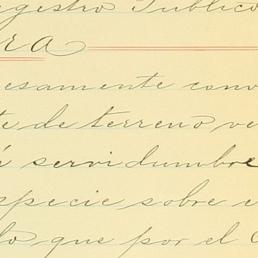 egistro Publico
ra
esamente conv
te de terreno ve
a servidumbre
specie sobre e
lo que por el C